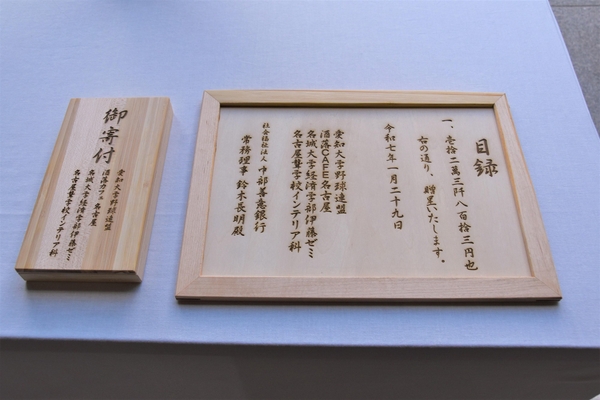 御寄付
愛知大学野球連盟
沼落カフェ名古屋
名城大学経済学部伊藤ゼミ
名古屋聾学校インテリア科
目録
一、壱拾二萬三阡八百拾三円也
右の通り、贈呈いたします。
令和七年一月二十九日
愛知大学野球連盟
沼落CAFE名古屋
名城大学経済学部伊藤ゼミ
名古屋聾学校インテリア科
社会福祉法人 中部善意銀行
常務理事 鈴木長明殿